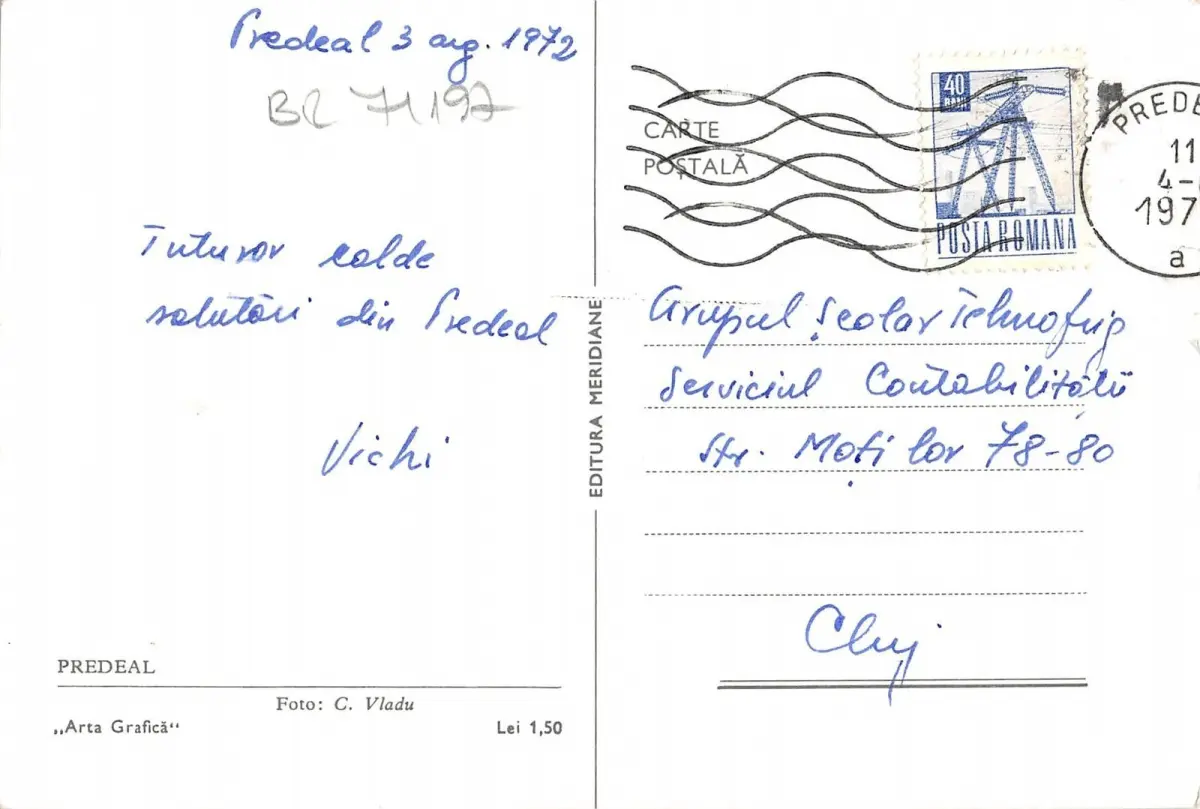 Predeal 3 aug. 1972
BR 71197
Tuturor calde
salutări din Predeal
Vichi
PREDEAL
Foto: C. Vladu
„Arta Grafică“
Lei 1,50
EDITURA MERIDIANE
CARTE
POȘTALĂ
40
BANI
POSTA ROMANA
PREDE
11
4-
197
a
Grupul Școlar Tehnofrig
Serviciul Contabilității
Str. Moților 78-80
Cluj